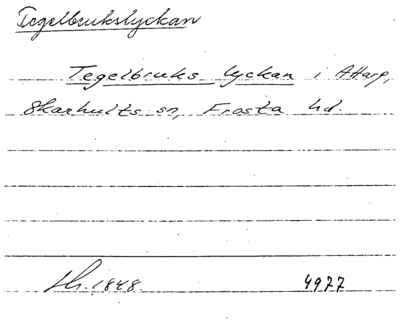 Tegelbrukslyckan
Tegelbruks lyckan i Attarp,
Skarhults sn, Frosta hd.
Lh. 1848. 4977